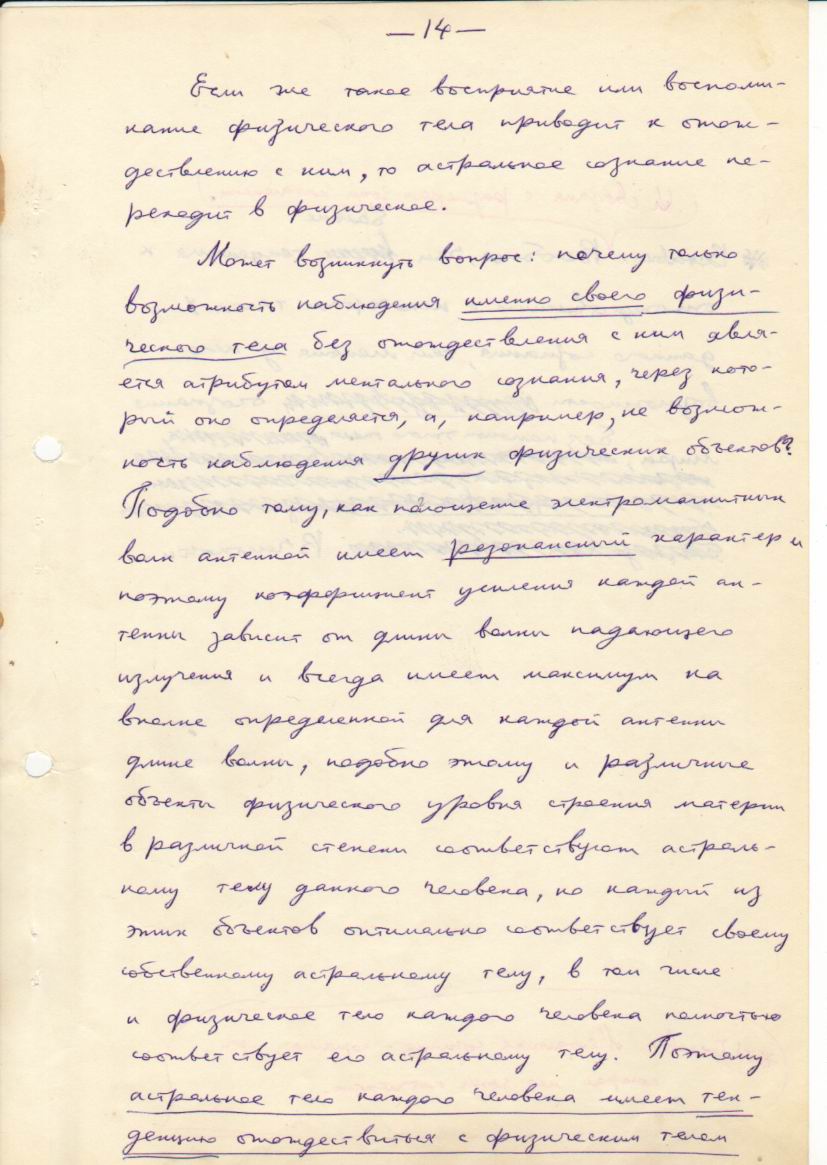 — 14 —
Если же такое восприятие или воспоми-
нание физического тела приводит к отож-
дествлению с ним, то астральное сознание пе-
реходит в физическое.
Может возникнуть вопрос: почему только
возможность наблюдения именно своего физи-
ческого тела без отождествления с ним явля-
ется атрибутом ментального сознания, через кото-
рый оно определяется, а, например, не возмож-
ность наблюдения других физических объектов?
Подобно тому, как поглощение электромагнитных
волн антенной имеет резонансный характер и
поэтому коэффициент усиления каждой ан-
тенны зависит от длины волны падающего
излучения и всегда имеет максимум на
вполне определенной для каждой антенны
длине волны, подобно этому и различные
объекты физического уровня строения материи
в различной степени соответствуют астраль-
ному телу данного человека, но каждый из
этих объектов оптимально соответствует своему
собственному астральному телу, в том числе
и физическое тело каждого человека полностью
соответствует его астральному телу. Поэтому
астральное тело каждого человека имеет тен-
денцию отождествиться с физическим телом